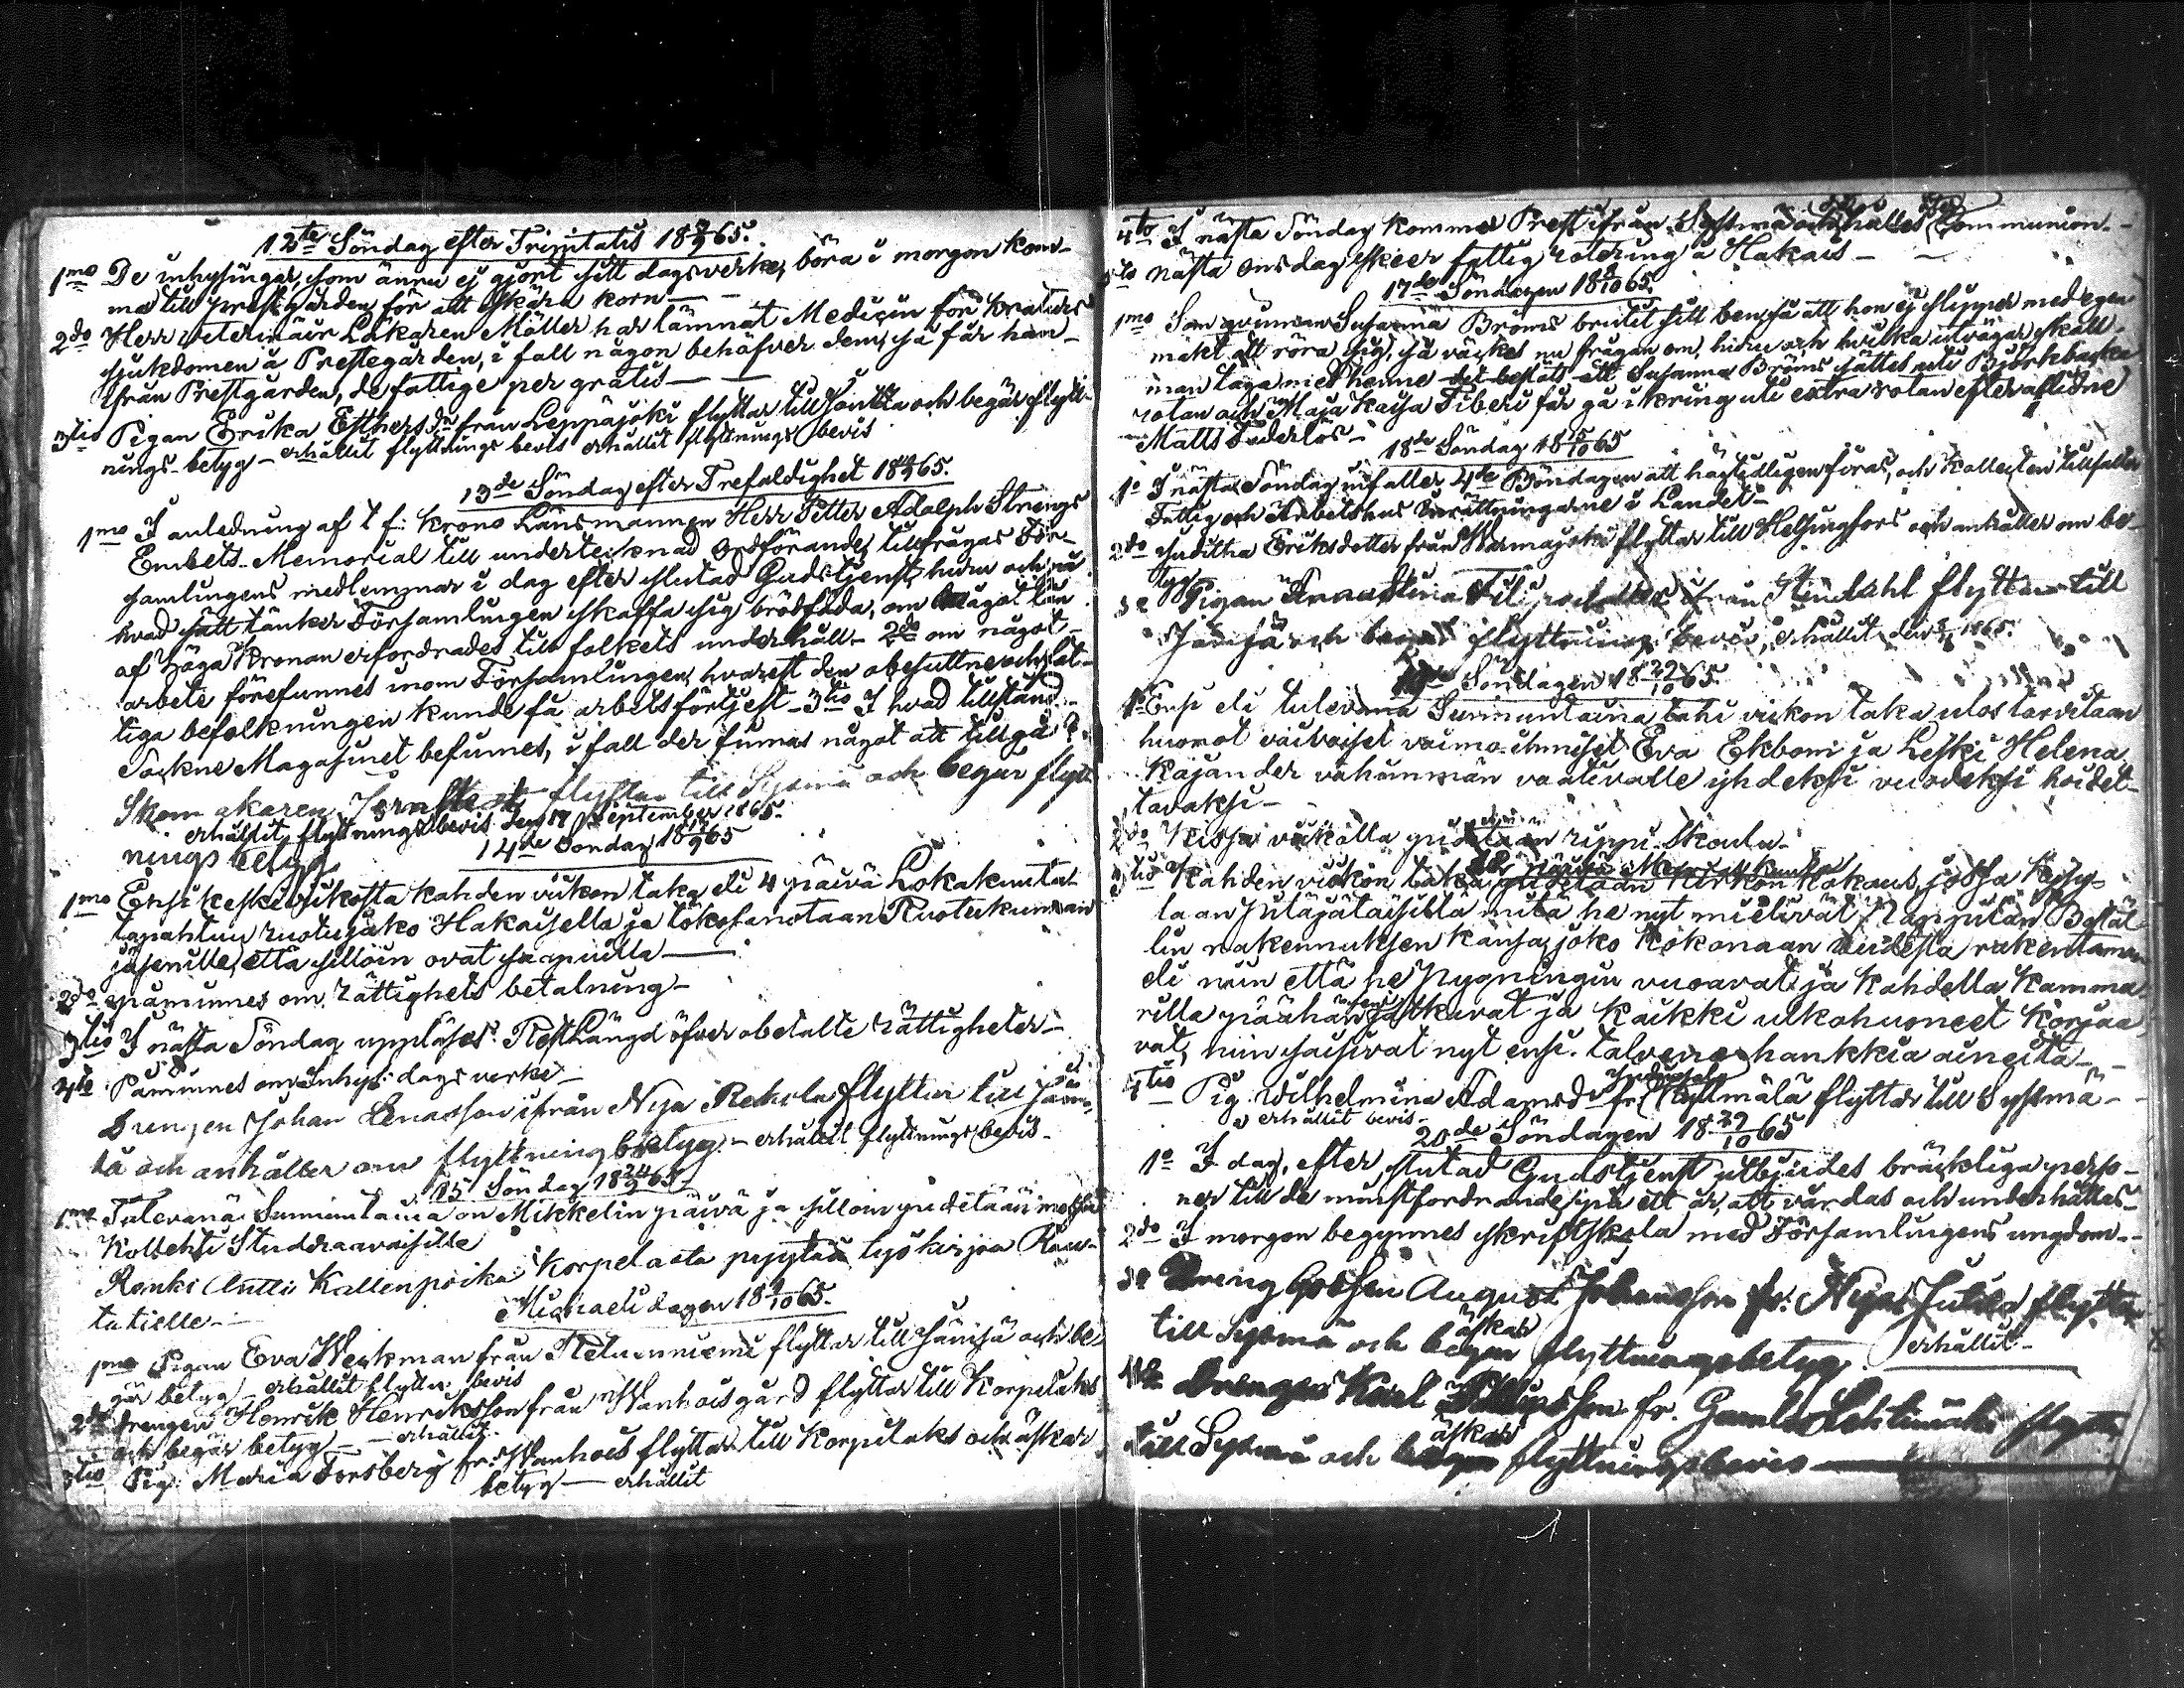 12te Söndag efter Trinitatis 18 3/9 65.
1mo De inhysingar, som ännu ej gjort sitt dagsverke, böra i morgon kom-
ma till prestgården för att skära korn —
2do Herr Veterinair Läkaren Möller har lämnat Medicin för kreaturs
sjukdomen å Prestegården, i fall någon behöfver dem, så får han
från Prestgården, de fattige per gratis —
3tio Pigan Erika Esthersdr från Leppäjoki flyttar till och begär flytt-
nings-betyg — erhållit flyttnings bevis erhållit flyttnings bevis
13de Söndag efter Trefaldighet 18 65.
1mo I anledning af t. f. Krono Länsmannen Herr Petter Adolph Strengs
Embets-Memorial till undertecknad Ordförande, tillfrågas För-
samlingens medlemmar i dag efter slutad Gudstjenst, huru och på
hvad sätt tänker Församlingen skaffa sig brödföda, om något lån
af höga Kronan erfordrades till folkets underhåll — 2do om något
arbete förefunnes inom Församlingen, hvarest den obesuttne och fat-
tiga befolkningen kunde få arbetsförtjenst — 3tio I hvad tillstånd
Sockne Magasinet befinnes, i fall der finnas något att tillgå?
Skomakaren flyttar till Sysmä och begär flytt
erhållit flyttningsbevis den September 1865.
nings betyg
14de Söndag 18 65
1mo Ensi keskiviikosta kahden viikon taka eli 4 päivä Lokakuuta
tapahtuu ruotujako Hakaisella ja Ruotukunnan
jäsenille, että silloin ovat saapuilla —
2do påminnes om rättighets betalning —
3tio I nästa Söndag uppläses RestLängd öfver obetalte rättigheter —
4to Påminnes om Inhys: dagsverke —
Drengen Johan Lenasson ifrån Nya Rekola flyttar till Jäm-
sä och anhåller om flyttningsbetyg — erhållit flyttnings bevis —
15 Söndag 18 24/9 65
1mo Tulevana Sunnuntaina on Mikkelin päivä ja silloin pidetään
Kollehti
Renki Antti Kallenpoika Korpelasta pyytää työkirjaa Rau-
tatielle —
Michaeli dagen 18 1/10 65.
1mo Pigan Eva Weckman från Retunniemi flyttar till Jämsä och be-
gär betyg — erhållit flyttn. bevis
2do drengen Henrik Henriksson från Wanhais gård flyttar till Korpilaks
och begär betyg — erhållit —
3tio Pig. Maria Forsberg fr: Wanhais flyttar till Korpilaks och äskar
betyg — erhållit
4to I nästa Söndag kommer Prest ifrån Sysmä och hålles Communion —
5to nästa Onsdag skeer fattig rotering å Hakais —
17de Söndagen 18 8/10 65.
1mo Som Susanna Bröms brutit sitt ben, så att hon ej slipper med egen
makt att röra sig, så väckes nu frågan om, huru och hvilka utvägar skall
man taga med henne det bestås att Susanna Bröms sättes uti Björkbacka
rotan och Maja Kaisa Fiberi får gå i kring uti extra rotan efter aflidne
Matts Faderlös —
18de Söndag 18 15/10 65
1o I nästa Söndag infaller 4de Böndagen att högtidligen firas, och kollecten tillfaller
Fattig och Arbetshus Inrättningarne i Landet —
2do Juditha Eriksdotter från Warmajoki flyttar till Helsingfors och anhåller om be-
tyg
3o Pigan Anna Stina ifrån flyttar till
Jämsä och begär flyttnings bevis, erhållit den 1865.
Söndagen 18 22/10 65.
1o Ensi eli tulevana Sunnuntaina tahi viikon taka ulos tarvitaan
huonot vaivaiset vaimo-ihmiset Eva Ekboni ja Leski Helena
Kajander vähimmän vaativalle yhdeksi vuodeksi hoidet-
tavaksi —
2do viikolla pidetään rippi-skoulu —
3tio Kahden viikon taka pidetään Kirkon Kokous, jossa kysy-
tään pitäjäläisiltä mitä he nyt mielivät Pappilan
rakennuksen kanssa, joko kokonaan uudesta rakentaman
eli niin että he Pygningin vuoraavat ja kahdella kamma-
rilla päähän jatkavat ja kaikki ulkohuoneet korjaa-
vat, niin saisivat nyt ensi talvena hankkia aineita —
4tio Pig. Wilhelmina Adamsdr fr. flyttar till Sysmä —
erhållit bevis —
20de Söndagen 18 29/10 65
1o I dag, efter slutad Gudstjenst utbjudes bräckliga perso-
ner till de minstfordrande, på ett år, att vårdas och underhållas —
2do I morgon begynnes skriftskola med Församlingens ungdom —
3o Dreng Gossen August Johansson fr. Nya flyttar
till Sysmä och begär äskar flyttningsbetyg erhållit —
4o Drengen Karl fr. Gamla flyttar
till Sysmä och begär äskar flyttningsbevis —